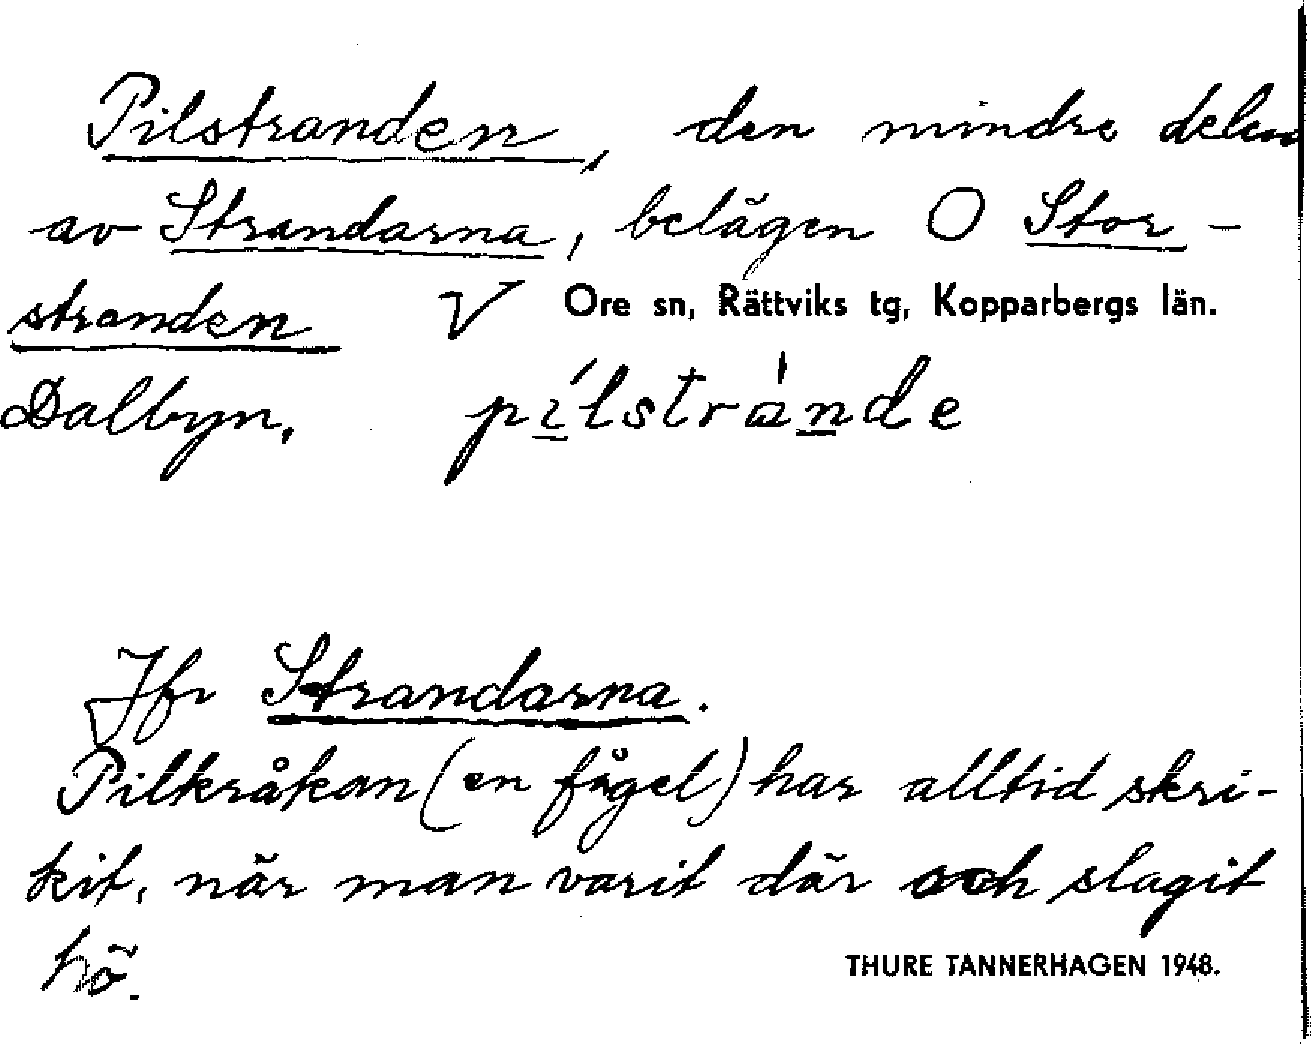 Pilstranden, den mindre delen
av Strandarna, belägen O Stor-
stranden V Ore sn, Rättviks tg, Kopparbergs län.
Dalbyn. pílstrande
Jfr Strandarna.
Pilkråkan (en fågel) har alltid skri-
kit, när man varit där och slagit
hö.
THURE TANNERHAGEN 1948.